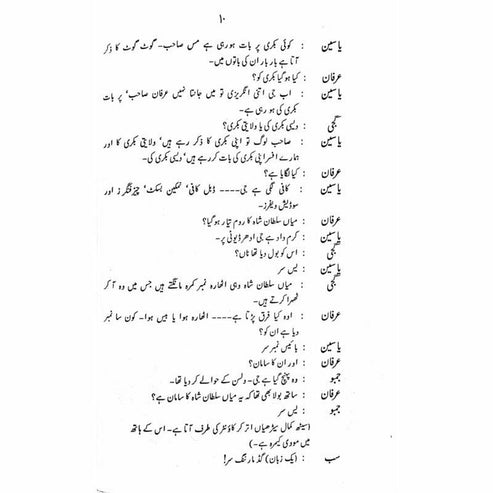 ۱۰
یاسین : کوئی بکری پر بات ہو رہی ہے مس صاحب۔ گوٹ گوٹ کا ذکر
آتا ہے بار بار ان کی باتوں میں۔
عرفان : کیا ہو گیا بکری کو؟
یاسین : اب جی اتنی انگریزی تو میں جانتا نہیں عرفان صاحب' پر بات
بکری کی ہو رہی ہے۔
گجی : دیسی بکری کی یا ولایتی بکری؟
یاسین : صاحب لوگ تو اپنی بکری کا ذکر رہے ہیں' ولایتی بکری کا اور
ہمارے افسر اپنی بکری کی بات کر رہے ہیں' دیسی بکری کی۔
عرفان : کیا لگایا ہے؟
یاسین : کافی لگی ہے جی---- ڈبل کافی' نمکین بسکٹ' چیز فنگرز اور
سوڈیش ویفرز۔
عرفان : میاں سلطان شاہ کا روم تیار ہو گیا؟
یاسین : کرم داد ہے جی ادھر ڈیوٹی پر۔
گجی : اس کو بول دیا تھا ناں؟
یاسین : یس سر
گجی : میاں سلطان شاہ وہی اٹھارہ نمبر کمرہ مانگتے ہیں جس میں وہ آ کر
ٹھہرا کرتے ہیں۔
عرفان : اوہ کیا فرق پڑتا ہے---- اٹھارہ ہوا یا بیس ہوا۔ کون سا نمبر
دیا ہے ان کو؟
یاسین : بائیس نمبر سر
عرفان : اور ان کا سامان؟
جمبو : وہ پہنچ گیا ہے جی۔ ولسن کے حوالے کر دیا تھا۔
عرفان : ساتھ بولا بھی تھا کہ یہ میاں سلطان شاہ کا سامان ہے؟
جمبو : یس سر
(سیٹھ کمال سیڑھیاں اتر کر کاؤنٹر کی طرف آتا ہے۔ اس کے ہاتھ
میں مووی کیمرہ ہے۔)
سب : (یک زبان) گڈ مارننگ سر!